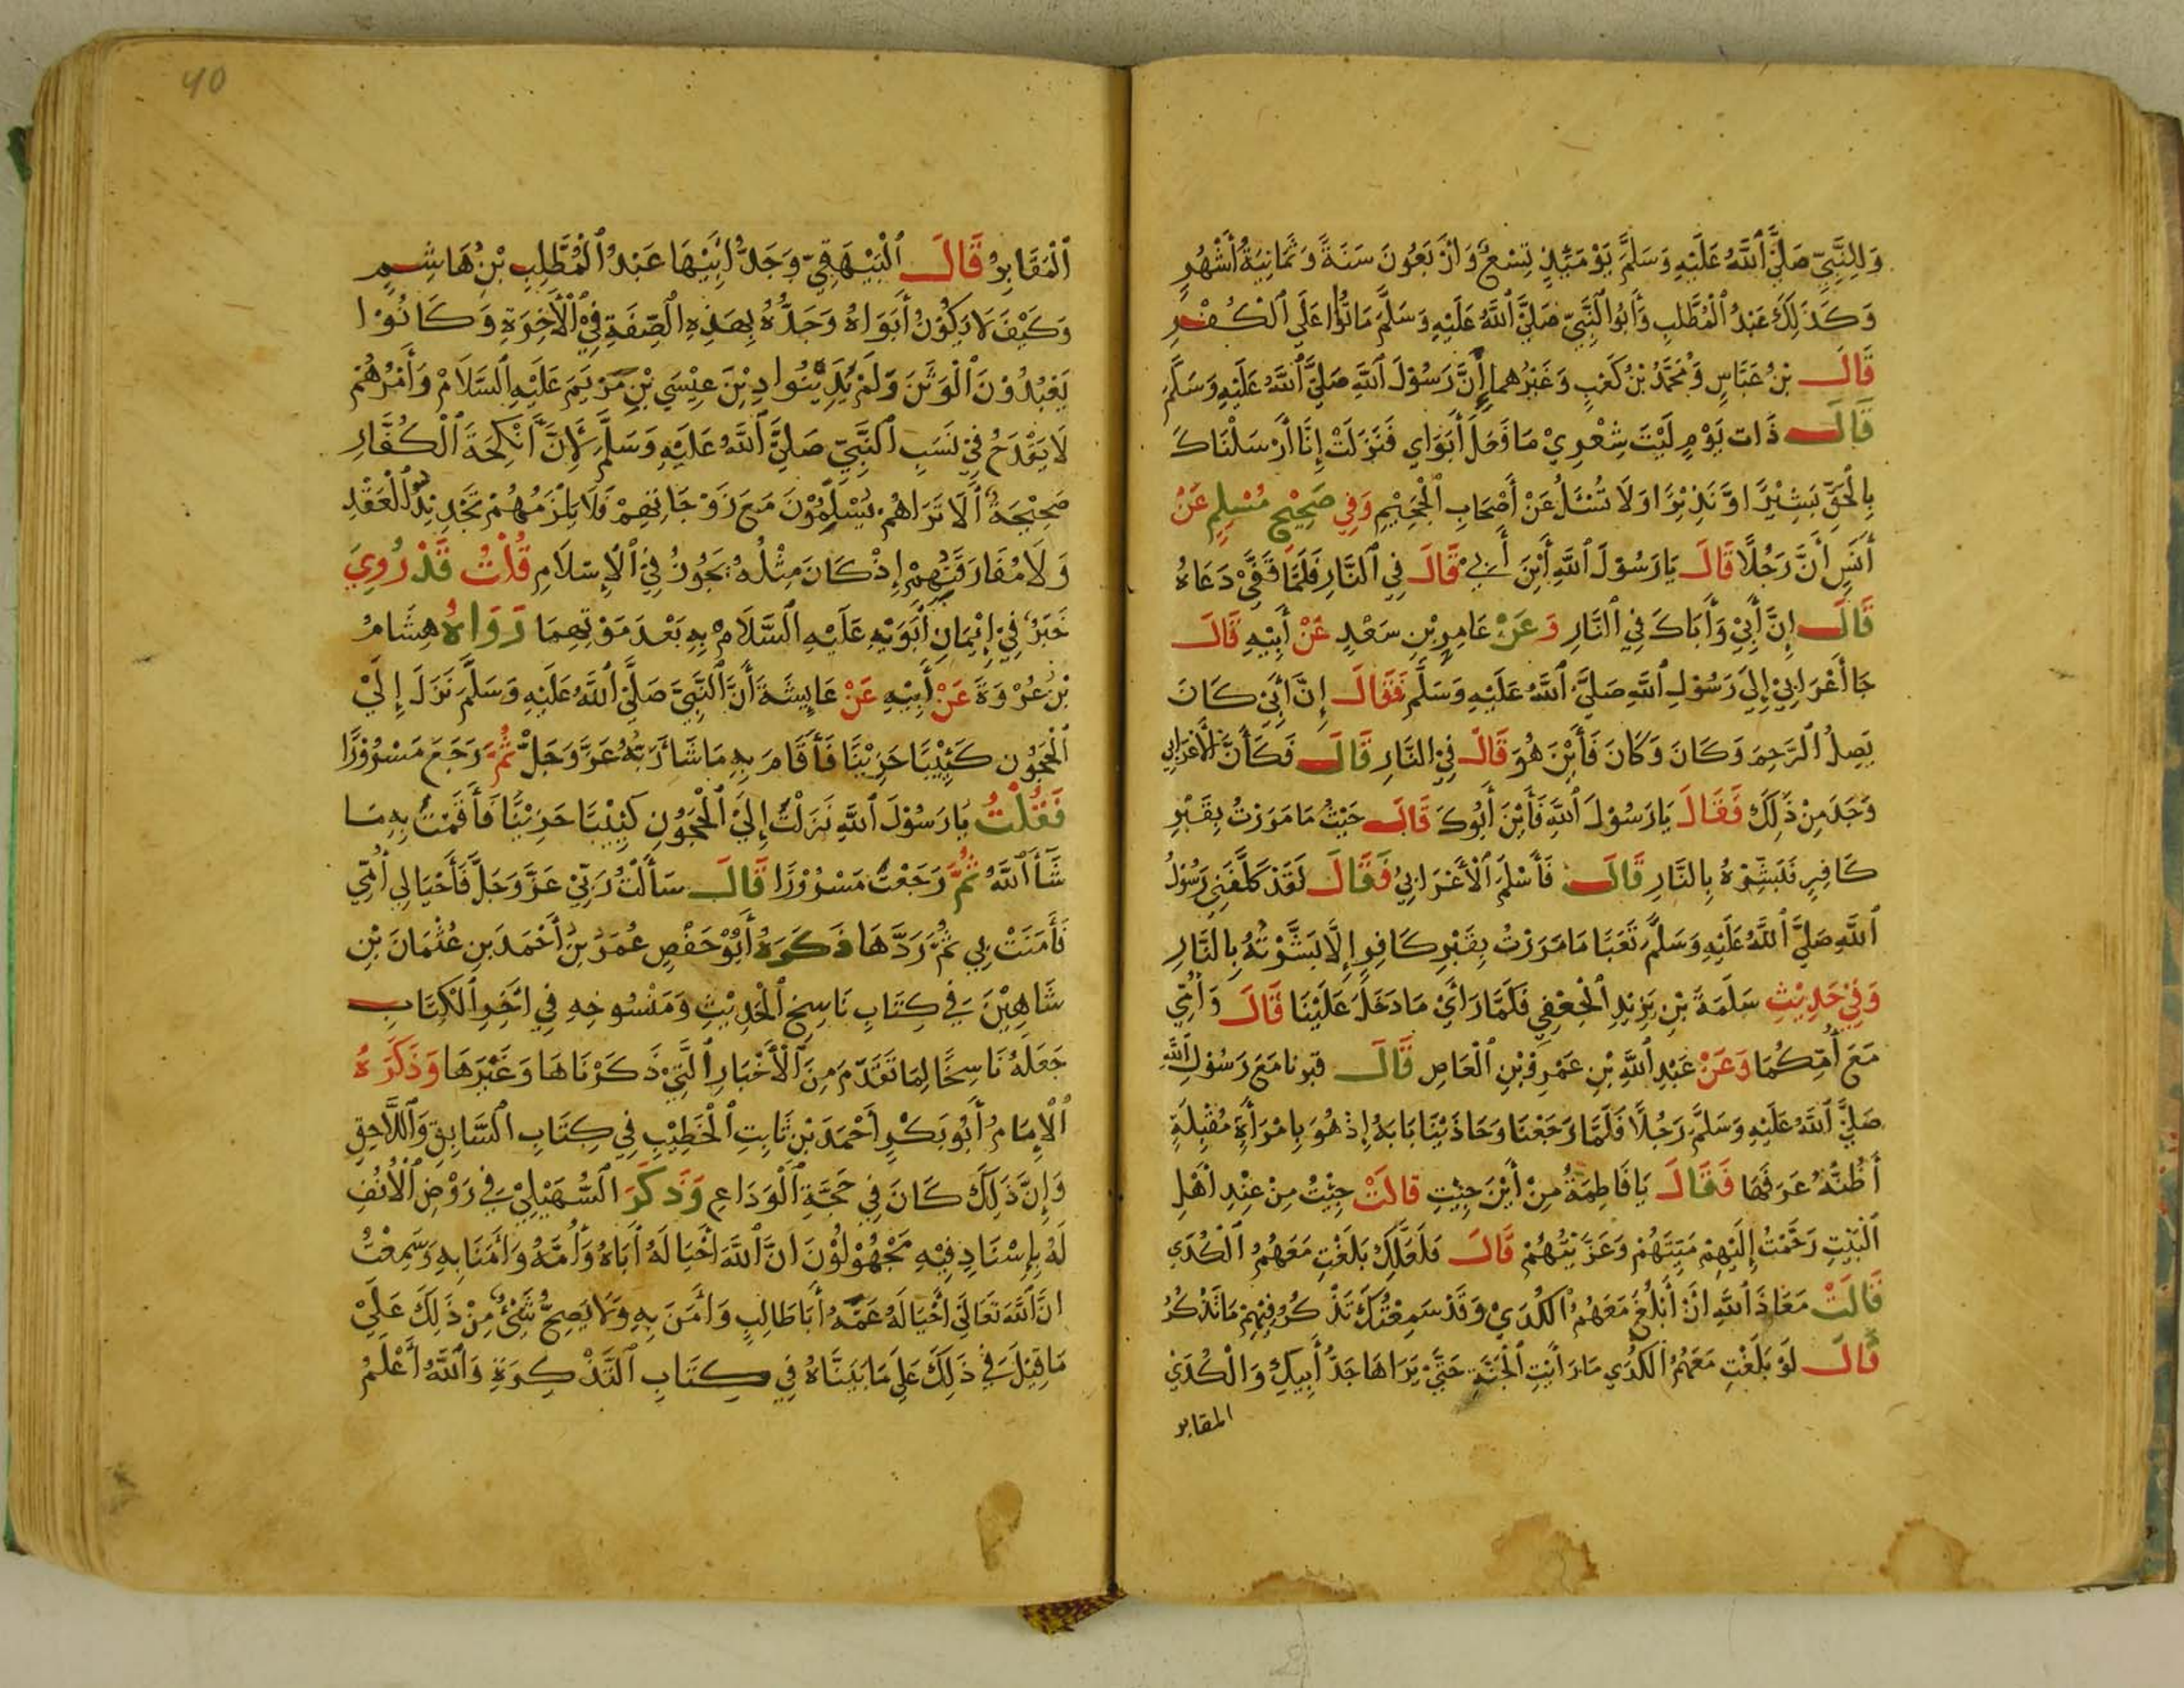 وَلِلنَّبِيِّ صَلَّى ٱللَّهُ عَلَيْهِ وَسَلَّمَ يَوْمَئِذٍ تِسْعٌ وَأَرْبَعُونَ سَنَةً وَثَمَانِيَةُ أَشْهُرٍ
وَكَذَلِكَ عَبْدُ ٱلْمُطَّلِبِ وَأَبُوا ٱلنَّبِيِّ صَلَّى ٱللَّهُ عَلَيْهِ وَسَلَّمَ مَاتُوا عَلَى ٱلْكُفْرِ
قَالَ بْنُ عَبَّاسٍ وَمُحَمَّدُ بْنُ كَعْبٍ وَغَيْرُهُما إِنَّ رَسُوْلَ ٱللَّهِ صَلَّى ٱللَّهُ عَلَيْهِ وَسَلَّمَ
قَالَ ذَات يَوْمٍ لَيْتَ شِعْرِيْ مَا فَعَلَ أَبَوَاي فَنَزَلَتْ إِنَّا أَرْسَلْنَاكَ
بِالْحَقِّ بَشِيْرًا وَّنَذِيْرًا وَلَا تُسْئَلُ عَنْ أَصْحَابِ ٱلْجَحِيْمِ وَفِي صَحِيْحِ مُسْلِمٍ عَنْ
أَنَسٍ أَنَّ رَجُلًا قَالَ يَا رَسُوْلَ ٱللَّهِ أَيْنَ أَبِيْ قَالَ فِي ٱلنَّارِ فَلَمَّا قَفَّىْ دَعَاهُ
قَالَ إِنَّ أَبِيْ وَأَبَاكَ فِي ٱلنَّارِ وَعَنْ عَامِرِ بْنِ سَعْدٍ عَنْ أَبِيْهِ قَالَ
جَا أَعْرَابِيْ إِلَى رَسُوْلِ ٱللَّهِ صَلَّى ٱللَّهُ عَلَيْهِ وَسَلَّمَ فَقَالَ إِنَّ أَبِيْ كَانَ
يَصِلُ ٱلرَّحِمَ وَكَانَ وَكَانَ فَأَيْنَ هُوَ قَالَ فِي النَّارِ قَالَ فَكَأَنَّ الْأَعْرَابِي
وَجَدَ مِنْ ذَلِكَ فَقَالَ يَا رَسُوْلَ ٱللَّهِ فَأَيْنَ أَبُوْكَ قَالَ حَيْثُ مَا مَرَرْتُ بِقَبْرِ
كَافِرٍ فَبَشِّرْهُ بِالنَّارِ قَالَ فَأَسْلَمَ ٱلْأَعْرَابِيُ فَقَالَ لَقَدْ كَلَّفَنِي رَسُوْلُ
ٱللَّهِ صَلَّى ٱللَّهُ عَلَيْهِ وَسَلَّمَ تَعَبًا مَا مَرَرْتُ بِقَبْرِ كَافِرٍ إِلَّا بَشَّرْتُهُ بِالنَّارِ
وَفِيْ حَدِيْثِ سَلَمَةَ بْنِ يَزِيْدِ ٱلْجُعْفِي فَلَمَّا رَأَىْ مَا دَخَلَ عَلَيْنَا قَالَ وَأُمِّي
مَعَ أُمِّكُمَا وَعَنْ عَبْدِ ٱللَّهِ بْنِ عَمْرِو بْنِ ٱلْعَاصِ قَالَ قبرنا مَعَ رَسُوْلِ ٱللَّهِ
صَلَّى ٱللَّهُ عَلَيْهِ وَسَلَّمَ رَجُلًا فَلَمَّا رَجَعْنَا وَحَاذَيْنَا بَابَهُ إِذْ هُوَ بِامْرَأَةٍ مُقْبِلَةٍ
أَظُنُّهُ عَرَفَهَا فَقَالَ يَا فَاطِمَةُ مِنْ أَيْنَ جِيْتِ قَالَتْ جِيْتُ مِنْ عِنْدِ أَهْلِ
ٱلْبَيْتِ رَحَّمْتُ إِلَيْهِمْ مَيِّتَهُمْ وَعَزَّيْتُهُمْ قَالَ فَلَعَلَّكِ بَلَغْتِ مَعَهُمُ ٱلْكُدَي
قَالَتْ مَعَاذَ ٱللَّهِ أَنْ أَبْلُغَ مَعَهُمُ ٱلْكُدَيْ وَقَدْ سَمِعْتُكَ تَذْكُرُ فِيْهِمْ مَا تَذْكُرُ
قَالَ لَوْ بَلَغْتِ مَعَهُمُ ٱلْكُدَي مَا رَأَيْتِ ٱلْجَنَّةَ حَتَّىْ يَرَاهَا جَدُّ أَبِيكِ وَالْكُدَيْ
المقابر
40
ٱلْمَقَابِرُ قَالَ ٱلْبَيْهَقِيّ وَجَدُّ أَبِيْهَا عَبْدُ ٱلْمُطَّلِبِ بْنُ هَاشِمٍ
وَكَيْفَ لَا يَكُوْنُ أَبَوَاهُ وَجَدُّهُ بِهَذِهِ ٱلصِّفَةِ فِيْ ٱلْأَخِرَةِ وَكَانُوْا
يَعْبُدُوْنَ ٱلْوَثَنَ وَلَمْ يَدِيْنُوا دِيْنَ عِيْسَي بْنِ مَرْيَمَ عَلَيْهِ ٱلسَّلَامْ وَأَمْرُهُمْ
لَا يَقْدَحُ فِيْ نَسَبِ ٱلنَّبِيِّ صَلَّى ٱللَّهُ عَلَيْهِ وَسَلَّمَ لِأَنَّ أَنْكِحَةَ ٱلْكُفَّارِ
صَحِيْحَةٌ أَلَا تَرَاهُمْ يُسْلِمُوْنَ مَعَ زَوْجَاتِهِمْ فَلَا يَلْزَمُهُمْ تَجْدِيْدُ ٱلْعَقْدِ
وَلَا مُفَارَقَتُهُمْ إِذْ كَانَ مِثْلُهُ يَجُوْزُ فِيْ ٱلْإِسْلَامِ قُلْتُ قَدْ رُوِيَ
خَبَرٌ فِيْ إِيْمَانِ أَبَوَيْهِ عَلَيْهِ ٱلسَّلَامْ بِهِ بَعْدَ مَوْتِهِمَا رَوَاهُ هِشَامُ
بْنُ عُرْوَةَ عَنْ أَبِيْهِ عَنْ عَايِشَةَ أَنَّ ٱلنَّبِيَّ صَلَّى ٱللَّهُ عَلَيْهِ وَسَلَّمَ نَزَلَ إِلَىْ
ٱلْحَجُوْنِ كَئِيْبًا حَزِيْنًا فَأَقَامَ بِهِ مَا شَا رَبُّهُ عَزَّ وَجَلَّ ثُمَّ رَجَعَ مَسْرُوْرًا
فَقُلْتُ يَا رَسُوْلَ ٱللَّهِ نَزَلْتُ إِلَىْ ٱلْحَجُوْنِ كَئِيْبًا حَزِيْنًا فَأَقَمْتُ بِهِ مَا
شَأَ ٱللَّهُ ثُمَّ رَجَعْتُ مَسْرُوْرًا قَالَ سَأَلْتُ رَبِّيْ عَزَّ وَجَلَّ فَأَحْيَا لِي أُمِّي
فَأَمَنَتْ بِي ثُمَّ رَدَّهَا ذَكَرَهُ أَبُوْ حَفْصٍ عُمَرُ بْنُ أَحْمَدَ بنِ عُثْمَانَ بْنِ
شَاهِيْنَ فِي كِتَابِ نَاسِخِ ٱلْحَدِيْثِ وَمَنْسُوخِهِ فِي أَخِرِ ٱلْكِتَابِ
جَعَلَهُ نَاسِخًا لِمَا تَقَدَّمَ مِنَ ٱلْأَخْبَارِ ٱلَّتِيْ ذَكَرْنَاهَا وَغَيْرَهَا وَذَكَرَهُ
ٱلْإِمَامُ أَبُو بَكْرٍ أَحْمَدَ بْن ثَابِتِ ٱلْخَطِيْبِ فِي كِتَابِ ٱلسَّابِقِ وَٱللَّاحِقِ
وَإِنَّ ذَلِكَ كَانَ فِي حَجَّةِ ٱلْوَدَاعِ وَذَكَرَ ٱلسُّهَيْلِيْ فِي رَوْضِ ٱلْأُنُفِ
لَهُ بِإِسْنَادٍ فِيْهِ مَجْهُوْلُوْنَ أَنَّ ٱللَّهَ أَحْيَا لَهُ أَبَاهُ وَأُمَّهُ وَأَمَنَا بِهِ وَسَمِعْتُ
أَنَّ ٱللَّهَ تَعَالَى أَحْيَا لَهُ عَمَّهُ أَبَا طَالِبٍ وَأَمَنَ بِهِ وَلَا يَصِحُّ شَئٌ مِنْ ذَلِكَ عَلَىْ
مَا قِيْلَ فِي ذَلِكَ عَلَى مَا بَيَنَّاهُ فِي كِتَابِ ٱلتَّذْكِرَةِ وَٱللَّهُ أَعْلَمُ